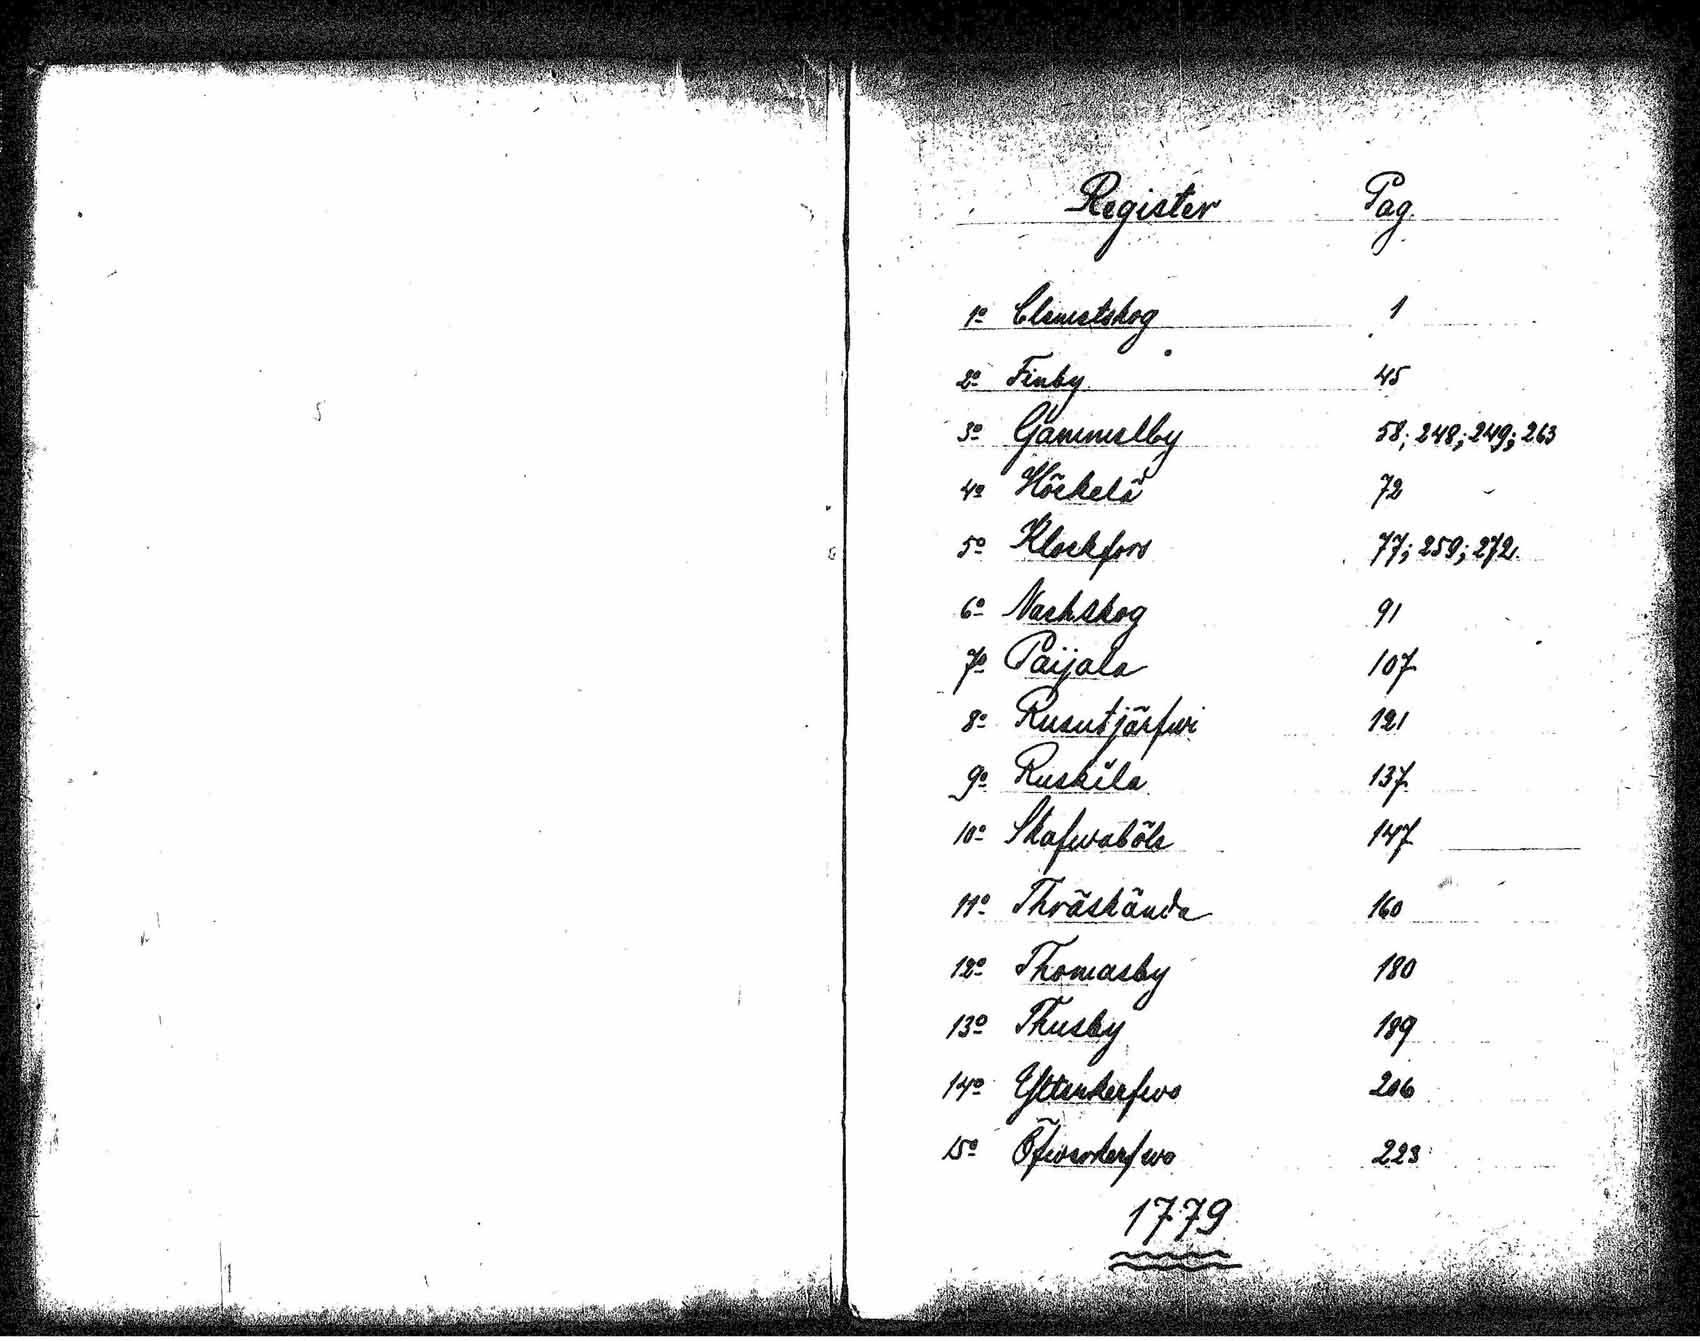 Register Pag.
1º Clemetskog 1
2º Finby 45
3º Gammelby 58; 248; 249; 263
4º Höckelä 72
5º Klockfors 77; 259; 272.
6º Nackskog 91
7º Paijala 107
8º Rusutjärfwi 121
9º Ruskila 137
10º Skafwaböle 147
11º Thräskända 160
12º Thomasby 180
13º Thusby 189
14º Ytterkerfwo 206
15º Öfwerkerfwo 223
1779